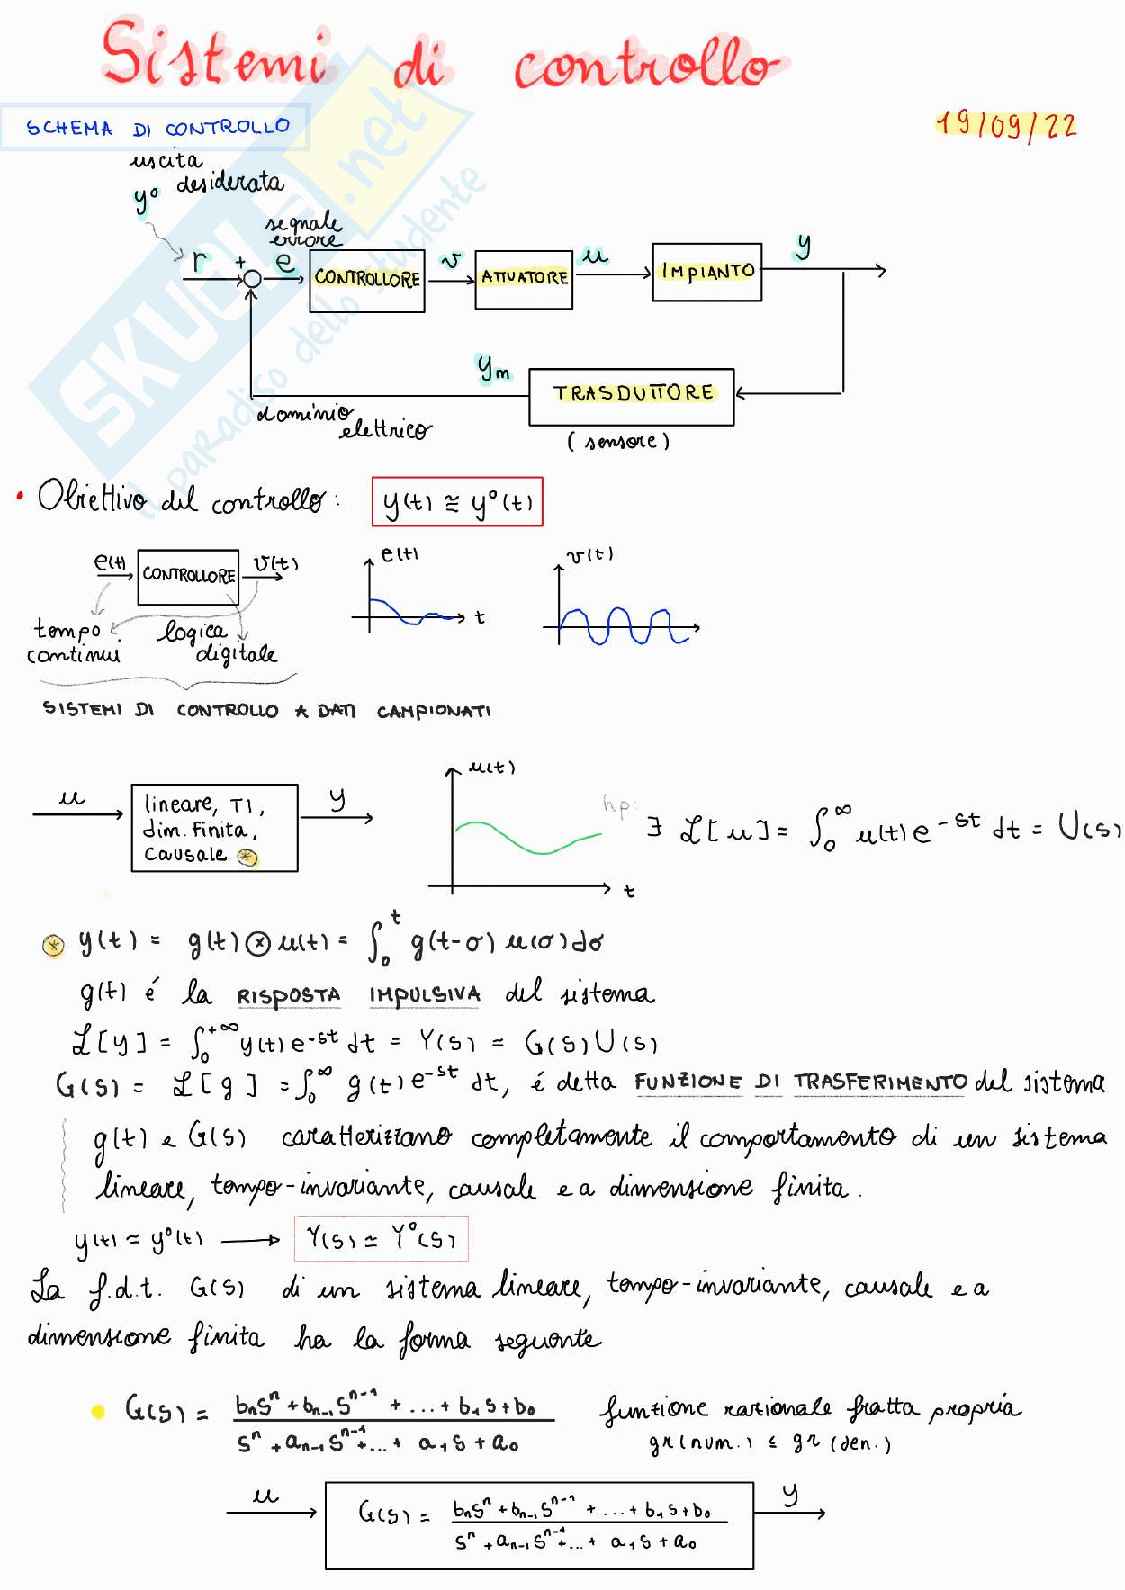 Sistemi di controllo
SCHEMA DI CONTROLLO
19/09/22
uscita
y° desiderata
segnale
errore
r + e CONTROLLORE v ATTUATORE u IMPIANTO y
ym
TRASDUTTORE
dominio
elettrico
(sensore)
SKUOLA.net
il paradiso dello studente
• Obiettivo del controllo: y(t) ≅ y°(t)
e(t) CONTROLLORE v(t)
e(t)
t
v(t)
tempo
continui
logica
digitale
SISTEMI DI CONTROLLO A DATI CAMPIONATI
u
lineare, TI,
dim. finita,
causale *
y
u(t)
t
hp: ∃ ℒ[u] = ∫₀^∞ u(t) e^-st dt = U(s)
* y(t) = g(t) ⊗ u(t) = ∫₀^t g(t-σ) u(σ) dσ
g(t) é la RISPOSTA IMPULSIVA del sistema
ℒ[y] = ∫₀^+∞ y(t) e^-st dt = Y(s) = G(s) U(s)
G(s) = ℒ[g] = ∫₀^∞ g(t) e^-st dt, é detta FUNZIONE DI TRASFERIMENTO del sistema
g(t) e G(s) caratterizzano completamente il comportamento di un sistema
lineare, tempo-invariante, causale e a dimensione finita.
y(t) ≃ y°(t) → Y(s) ≃ Y°(s)
La f.d.t. G(s) di un sistema lineare, tempo-invariante, causale e a
dimensione finita ha la forma seguente
• G(s) = (bₙsⁿ + bₙ₋₁sⁿ⁻¹ + ... + b₁s + b₀) / (sⁿ + aₙ₋₁sⁿ⁻¹ + ... + a₁s + a₀)
funzione razionale fratta propria
gr(num.) ≤ gr(den.)
u G(s) = (bₙsⁿ + bₙ₋₁sⁿ⁻¹ + ... + b₁s + b₀) / (sⁿ + aₙ₋₁sⁿ⁻¹ + ... + a₁s + a₀) y